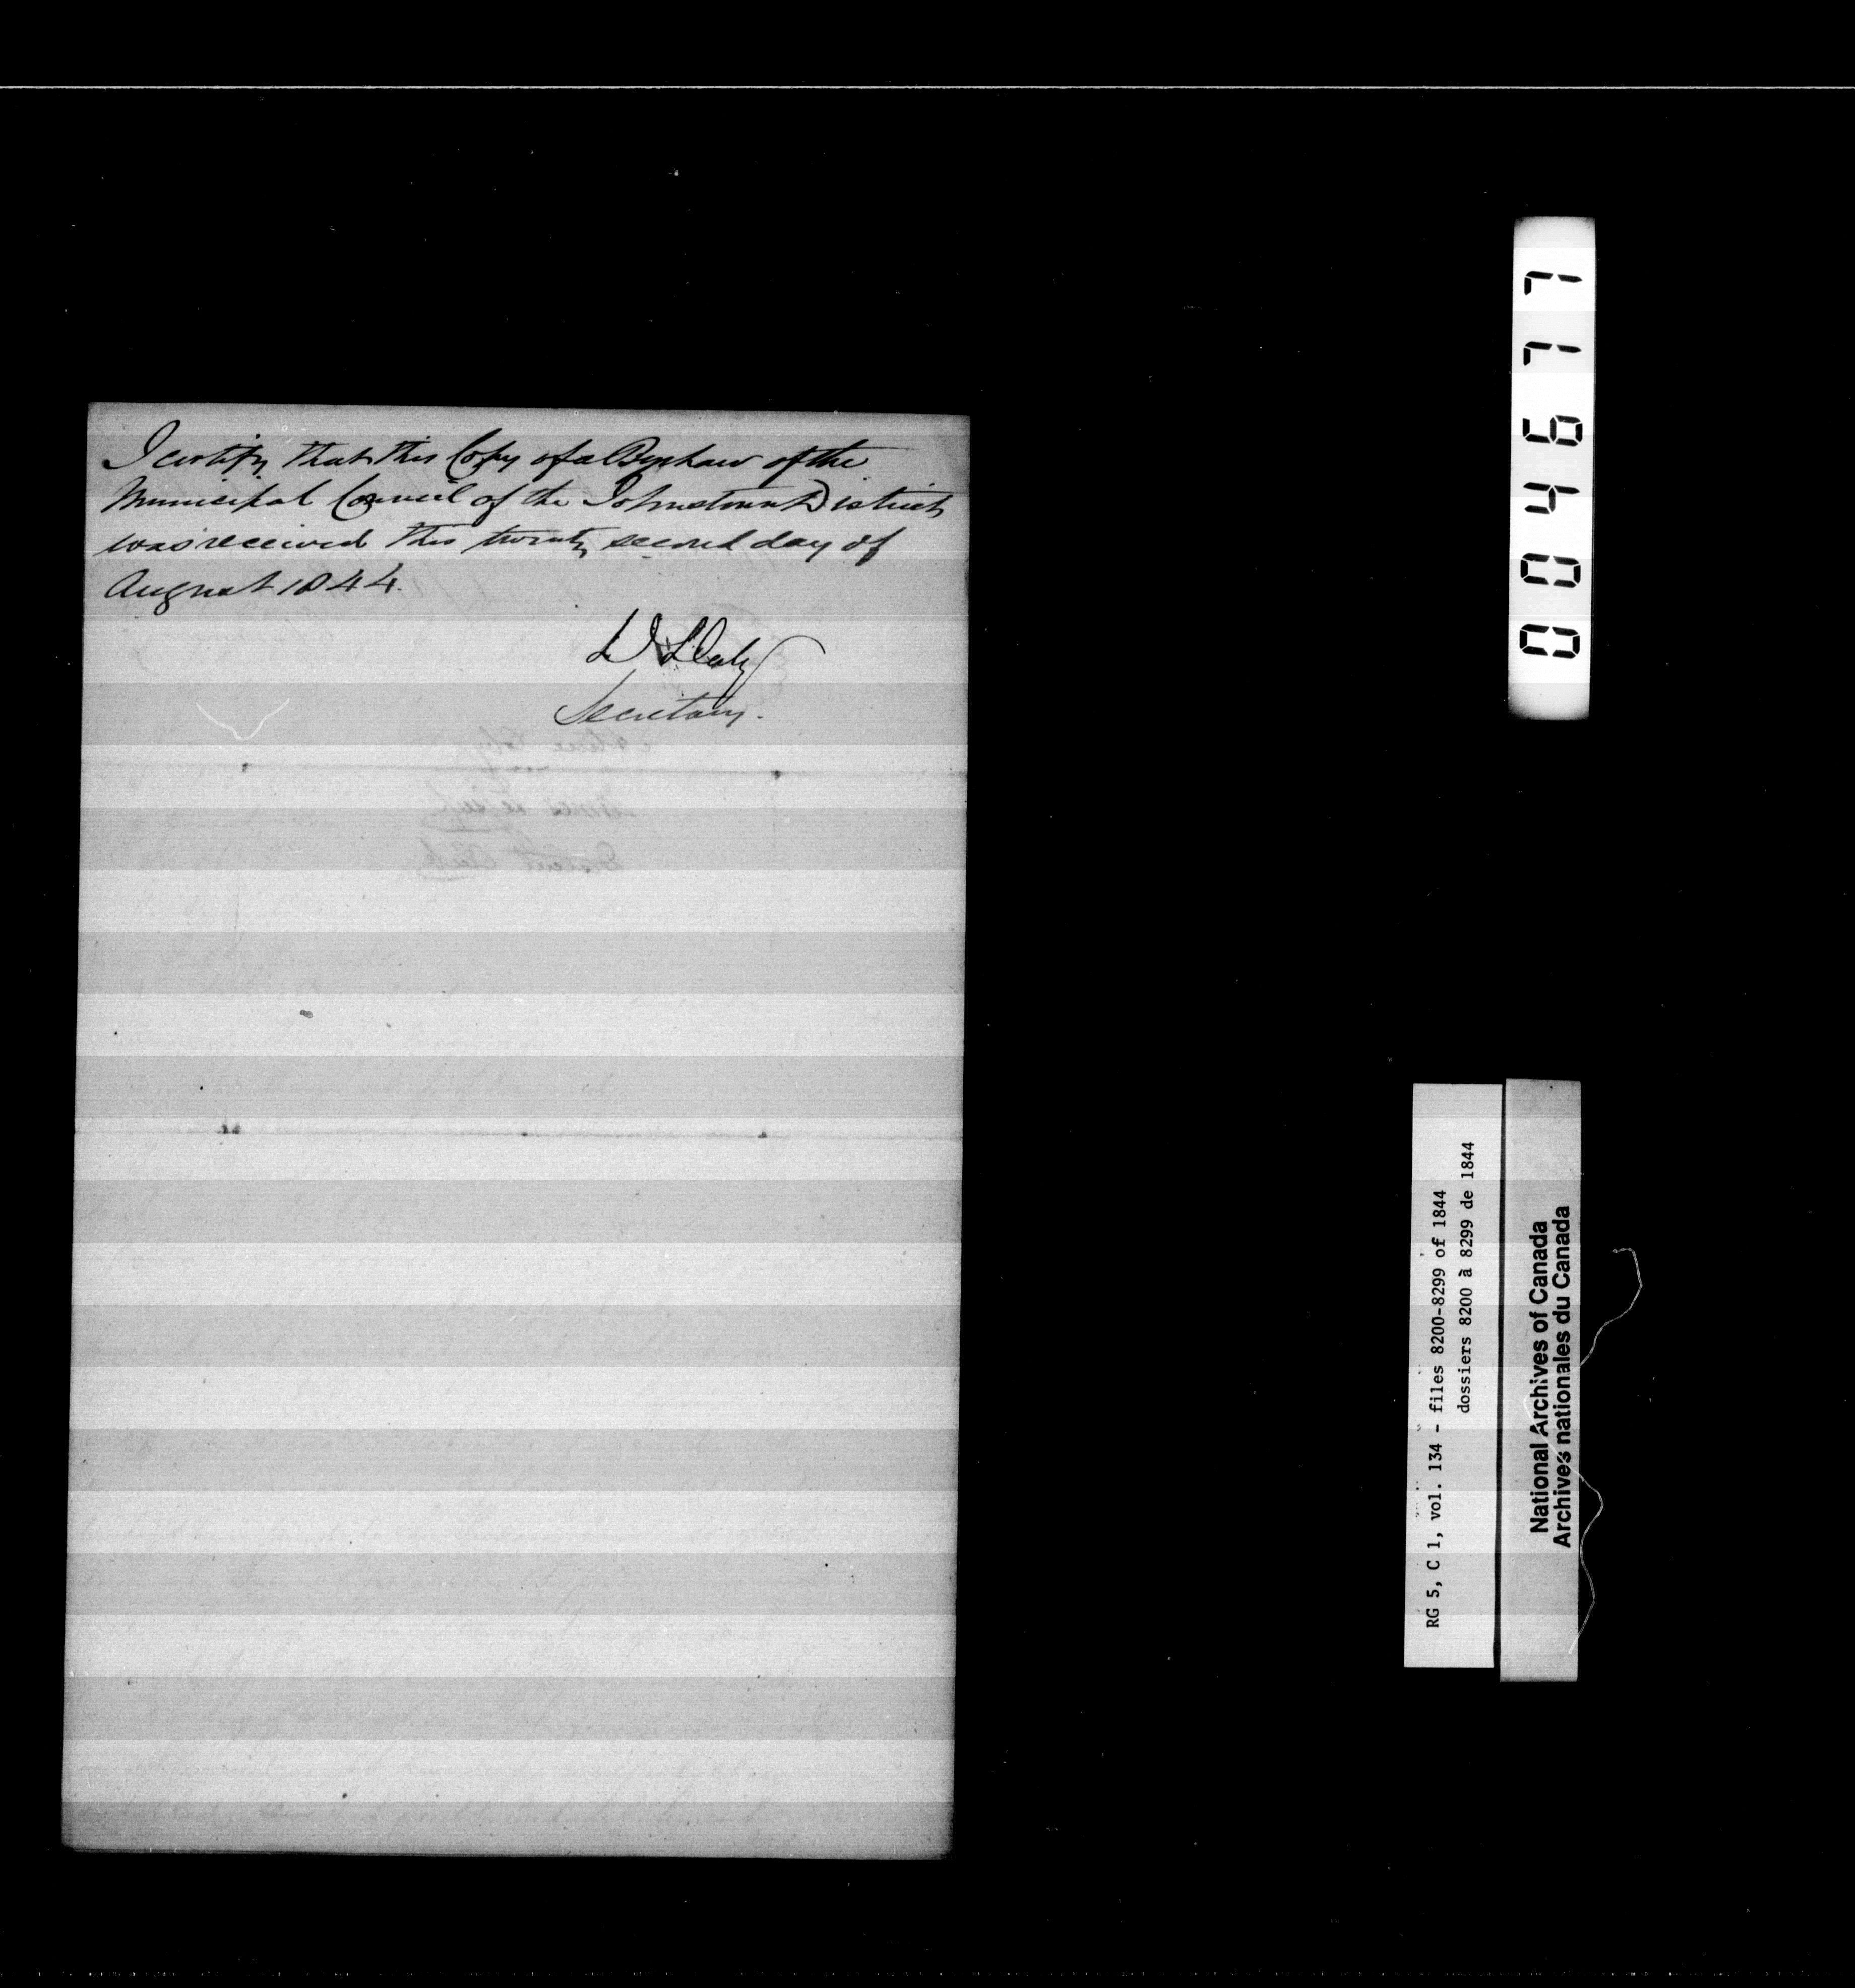 I certify that this Copy of a By Law of the
Municipal Council of the Johnstown District
was received this twenty second day of
August 1844.
D Daly
Secretary.
004677
RG 5, C 1, vol. 134 - files 8200-8299 of 1844
dossiers 8200 à 8299 de 1844
National Archives of Canada
Archives nationales du Canada